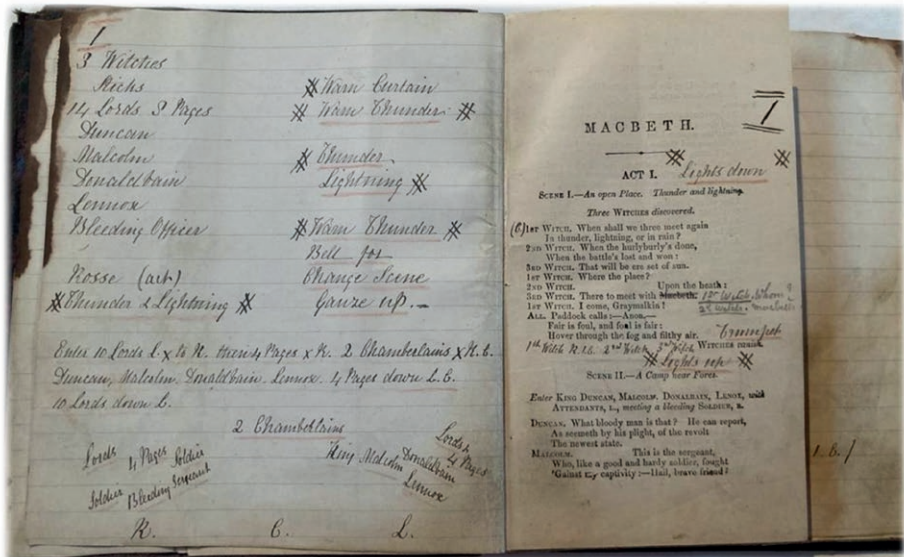 1
3 Witches
14 Lords 8 Pages
Duncan
Malcolm
Donaldbain
Lennox
Bleeding Officer
Rosse (arb)
Thunder & Lightning
Warn Curtain
Warn Thunder
Thunder
Lightning
Warn Thunder
Bell for
Change Scene
Gauze up.
Enter 10 Lords L. x to R. then 4 Pages x R. 2 Chamberlains x R.C.
Duncan, Malcolm, Donaldbain, Lennox. 4 Pages down L.C.
10 Lords down L.
2 Chamberlains
Lords 4 Pages Soldier
Soldier Bleeding Sergeant
King Malcolm Donaldbain Lords 4 Pages
Lennox
R. C. L.
1
MACBETH.
ACT I. Lights down
SCENE I.—An open Place. Thunder and lightning.
Three WITCHES discovered.
1ST WITCH. When shall we three meet again
In thunder, lightning, or in rain?
2ND WITCH. When the hurlyburly's done,
When the battle's lost and won:
3RD WITCH. That will be ere set of sun.
1ST WITCH. Where the place?
2ND WITCH. Upon the heath:
3RD WITCH. There to meet with Macbeth. 1st Witch. Whom?
1ST WITCH. I come, Graymalkin! 2d Witch. Macbeth
ALL. Paddock calls:—Anon,—
Fair is foul, and foul is fair:
Hover through the fog and filthy air. Trumpet
1st Witch R.U.E. 2nd Witch 3rd Witch WITCHES vanish.
Lights up
SCENE II.—A Camp near Fores.
Enter KING DUNCAN, MALCOLM, DONALBAIN, LENOX, with
ATTENDANTS, L., meeting a bleeding SOLDIER, R.
DUNCAN. What bloody man is that? He can report,
As seemeth by his plight, of the revolt
The newest state.
MALCOLM. This is the sergeant,
Who, like a good and hardy soldier, fought
'Gainst my captivity:—Hail, brave friend!